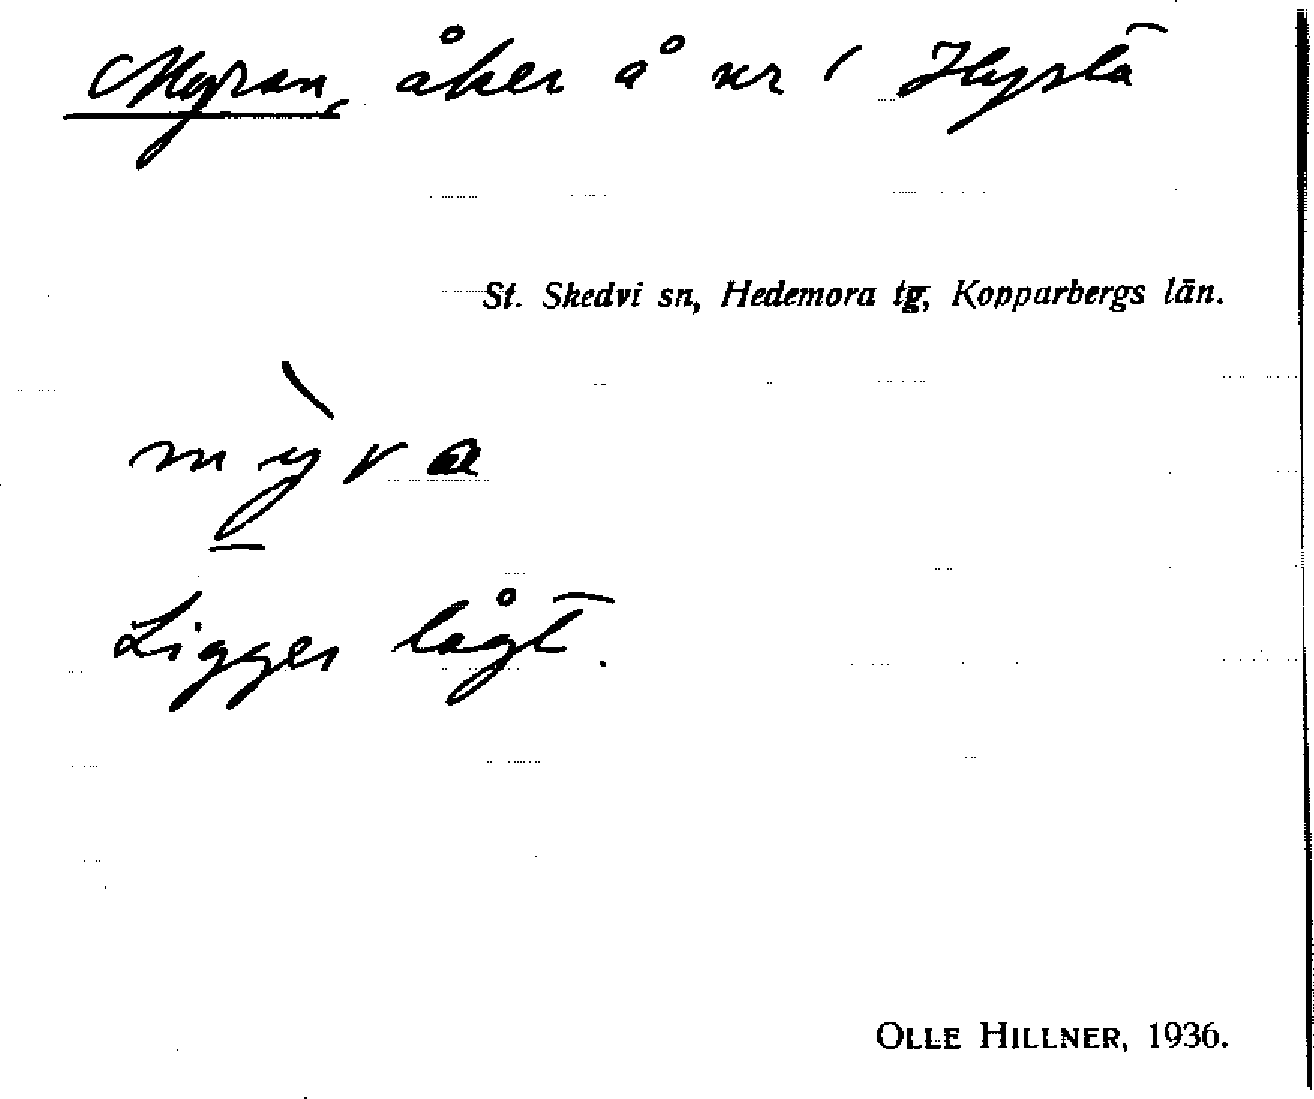 Myran, åker å nr 1 Hysta
St. Skedvi sn, Hedemora tg, Kopparbergs län.
myra
Ligger lågt.
OLLE HILLNER, 1936.